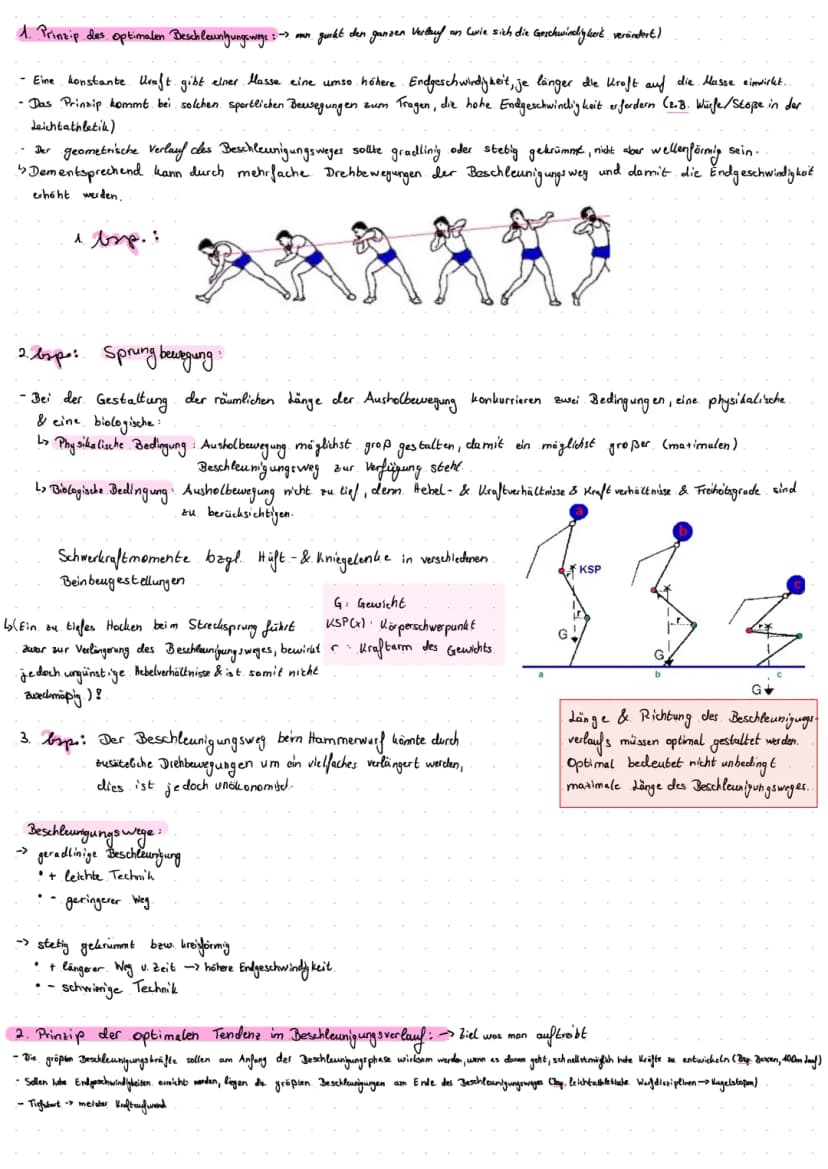 1. Prinzip des optimalen Beschleunigungswegs: -> man guckt den ganzen Verlauf an (wie sich die Geschwindigkeit verändert)
- Eine konstante Kraft gibt einer Masse eine umso höhere Endgeschwindigkeit, je länger die Kraft auf die Masse einwirkt.
- Das Prinzip kommt bei solchen sportlichen Bewegungen zum Tragen, die hohe Endgeschwindigkeit erfordern (z.B. Würfe/Stöße in der
Leichtathletik)
- Der geometrische Verlauf des Beschleunigungsweges sollte gradlinig oder stetig gekrümmt, nicht aber wellenförmig sein.
↳ Dementsprechend kann durch mehrfache Drehbewegungen der Beschleunigungsweg und damit die Endgeschwindigkeit
erhöht werden.
1. bsp.:
2. bsp: Sprungbewegung:
- Bei der Gestaltung der räumlichen Länge der Ausholbewegung konkurrieren zwei Bedingungen, eine physikalische
& eine biologische:
↳ Physikalische Bedingung: Ausholbewegung möglichst groß gestalten, damit ein möglichst großer (maximalen)
Beschleunigungsweg zur Verfügung steht.
↳ Biologische Bedingung: Ausholbewegung nicht zu tief, denn Hebel- & Kraftverhältnisse & Kraftverhältnisse & Freiheitsgrade sind
zu berücksichtigen.
a
b
c
KSP
r
r
r
G
G
G
a
b
c
Schwerkraftmomente bzgl. Hüft- & Kniegelenke in verschiedenen
Beinbeugestellungen
G: Gewicht
KSP(x): Körperschwerpunkt
r: Kraftarm des Gewichts
↳(Ein zu tiefes Hocken beim Strecksprung führt
zwar zur Verlängerung des Beschleunigungsweges, bewirkt
jedoch ungünstige Hebelverhältnisse & ist somit nicht
zweckmäßig)!
Länge & Richtung des Beschleunigungs-
verlaufs müssen optimal gestaltet werden.
Optimal bedeutet nicht unbedingt
maximale Länge des Beschleunigungsweges.
3. bsp: Der Beschleunigungsweg beim Hammerwurf könnte durch
zusätzliche Drehbewegungen um ein vielfaches verlängert werden,
dies ist jedoch unökonomisch.
Beschleunigungswege:
-> geradlinige Beschleunigung
• + leichte Technik
• - geringerer Weg
-> stetig gekrümmt bzw. kreisförmig
• + längerer Weg u. Zeit -> höhere Endgeschwindigkeit
• - schwierige Technik
2. Prinzip der optimalen Tendenz im Beschleunigungsverlauf: -> Ziel was man auftreibt
- Die größten Beschleunigungskräfte sollen am Anfang der Beschleunigungsphase wirksam werden, wenn es darum geht, schnellstmöglich hohe Kräfte zu entwickeln (Bsp. Boxen, 100m Lauf)
- Sollen hohe Endgeschwindigkeiten erreicht werden, liegen die größten Beschleunigungen am Ende des Beschleunigungsweges (bsp. leichtathletische Wurfdisziplinen -> Kugelstoßen)
- Tiefstart -> meister Kraftaufwand